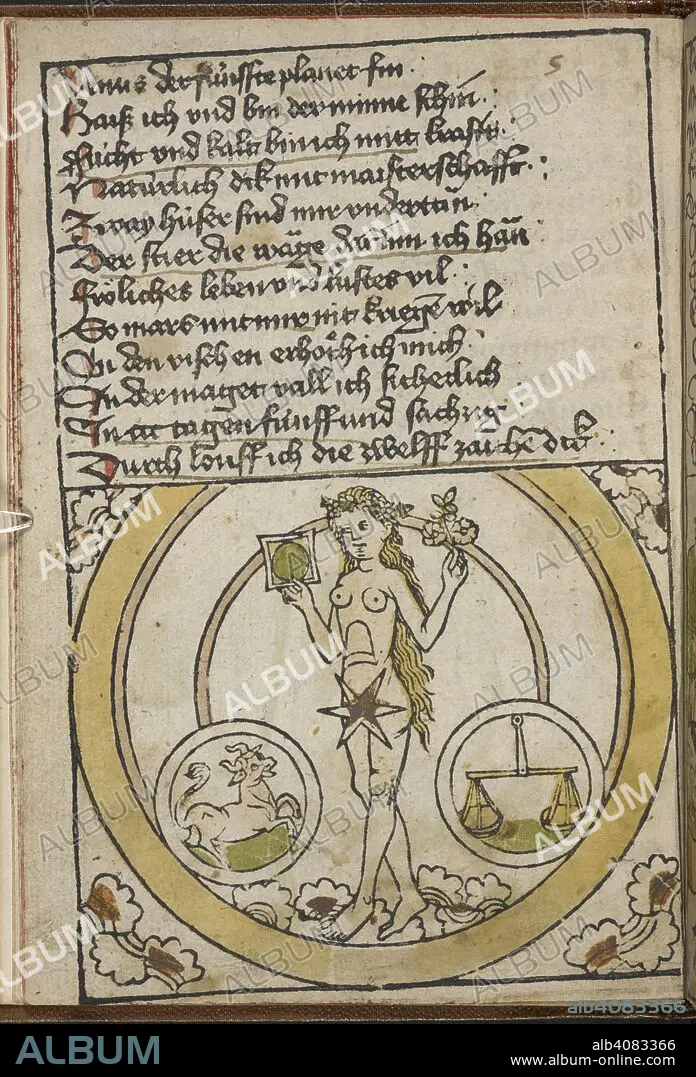 5
Venus der fünffte planet fin
Haiß ich vnd bin der minne schin
Fücht vnd kalt bin ich mitt krafft
Natürlich dick mit maisterschafft
Zway hüser sind mir vndertän
Der stier die wäge darinn ich hän
Fröliches leben vnd lustes vil
So mars mit mir nit kriegen wil
In den vischen erhöch ich mich
In der maget vall ich sicherlich
In tagen fünff vnd
Durch louff ich die zwelff zaichē
ALBUM
alb4083366
ALBUM
alb4083366
www.album-online.com